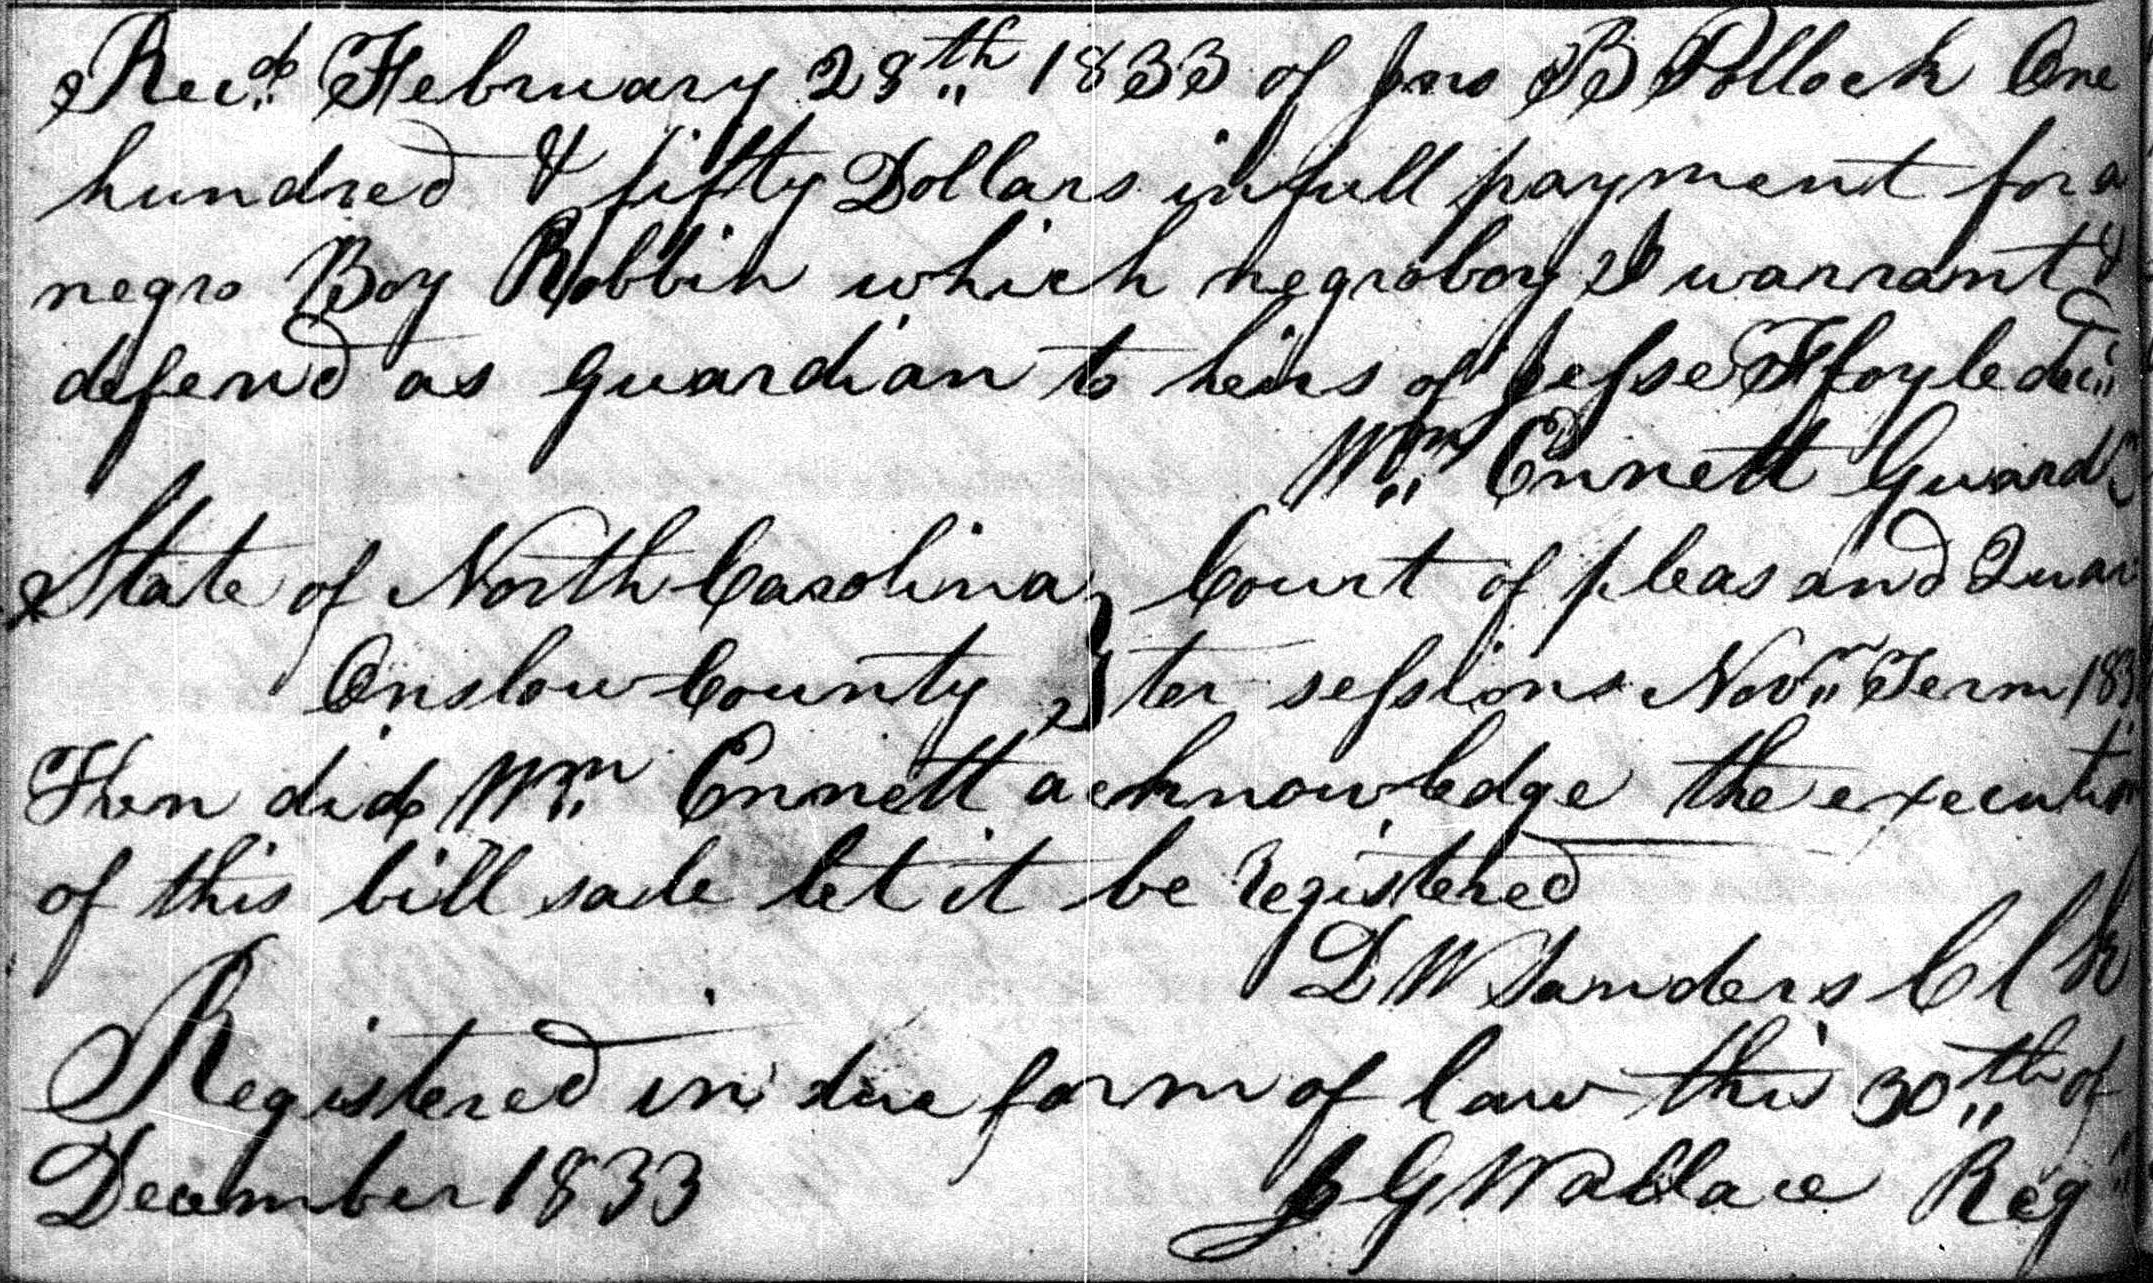 Recd. February 28th 1833 of Jno B Pollock One
hundred & fifty Dollars in full payment for a
negro Boy Robbin which negro boy I warrant &
defend as Guardian to heirs of Jesse Foyle decd
Wm Ennett Guard
State of North Carolina } Court of pleas and Quar
Onslow County } ter sessions Novr Term 183
Then did Wm Ennett acknowledge the execution
of this bill sale let it be registered
D W Sanders Clk
Registered in due form of law this 30th of
December 1833 J G Wallace Reg